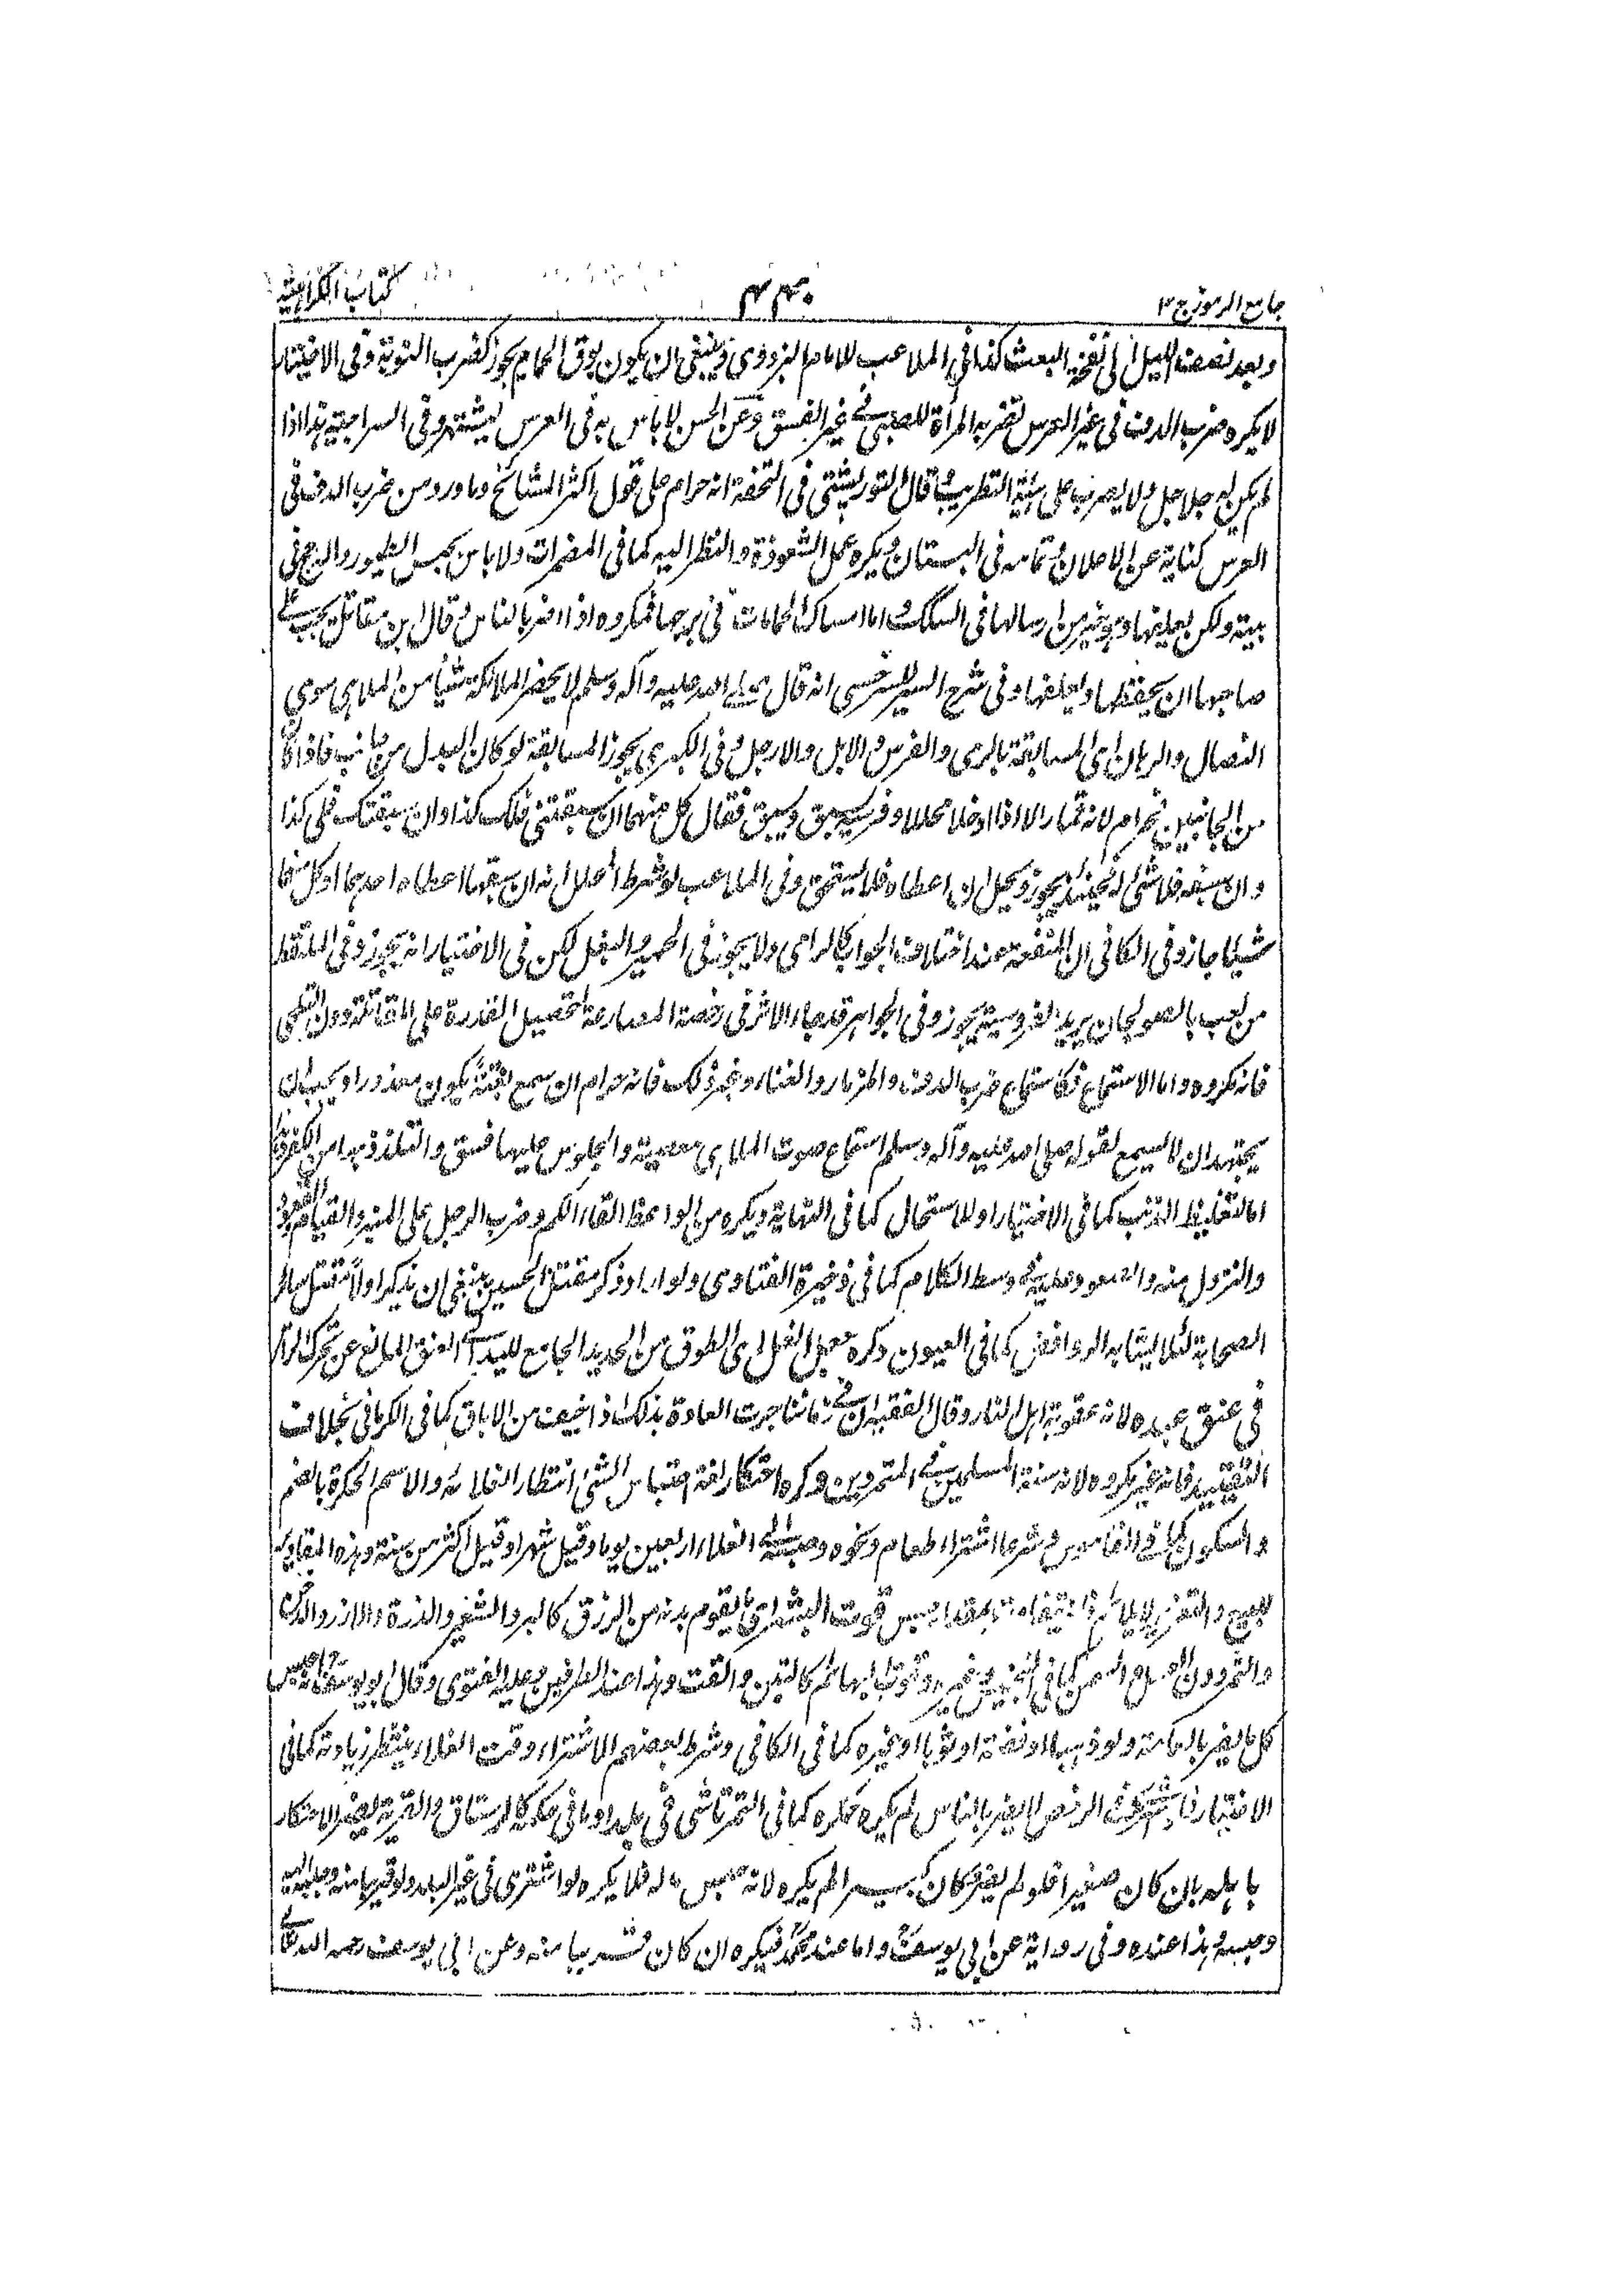 جامع الرموز ج ٣
كتاب الكراهية
وبعد نصف الليل الى نفخة البعث كذا في الملاعب للامام البزدوى وينبغى ان يكون بوق الحمام يجوز كضرب النوبة وفى الاختيار
لا يكره ضرب الدف فى غير العرس تضربه المرأة للصبى فے غير الفسق وعن الحسن لا باس به فى العرس ليشتهر وفى السراجية هذا اذا
لم يكن له جلاجل ولا يضرب على هيئة التطريب وقال التوربشتى فى التحفة انه حرام على قول اكثر المشائخ وما ورد من ضرب الدف فى
العرس كناية عن الاعلان وتمامه فى البستان ويكره عمل الشعوذة والنظر اليه كما فى المضمرات ولا باس بحبس الطيور والدجج فى
بيته ولكن يعلفها وهو خير من ارسالها فى السكك واما امساك الحمامات فى برجها فمكروه اذا اضر بالناس وقال ابن مقاتل يجب علے
صاحبها ان يحفظها ويعلفها وفى شرح السير للسرخسى انه قال صلے الله عليه وآله وسلم لا يحضر الملائكة شيأ من الملاهى سوى
النضال والرهان اى المسابقة بالرمى والفرس والابل والارجل وفى الكبرى يجوز المسابقة لو كان البدل من جانب فاذا كان
من الجانبين فحرام لانه قمار الا اذا ادخلا محللا وفرسه يسبق ويسبق فقال كل منهما ان سبقتنى فلك كذا وان سبقتك فلى كذا
وان سبقه فلا شئ له فحينئذ يجوز ويحل ان اعطاه فلا يستحق وفى الملاعب لو شرط المحلل انه ان سبقهما اعطاه احدهما او كل منهما
شيئا جاز وفى الكافى ان المتفقهة عند اختلاف الجواب كالرامى ولا يجوز فى الحمير والبغل لكن فى الاختيار انه يجوز وفى الملتقط
من لعب بالصولجان يريد الفروسية يجوز وفى الجواهر قد جاء الاثر فى رخصة المصارعة لتحصيل القدرة على المقاتلة دون التلهى
فانه مكروه واما الاستماع فكاستماع ضرب الدف والمزمار والغناء ونحو ذلك فانه حرام ان سمع بغتة يكون معذورا ويجب ان
يجتهد ان لا يسمع لقوله صلى الله عليه وآله وسلم استماع صوت الملاهى معصية والجلوس عليها فسق والتلذذ بها من الكفر
اما لتغليظ الذنب كما فى الاختيار او للاستحلال كما فى النهاية ويكره من الواعظ القاء الكم وضرب الرجل على المنبر والقيام والقعود
والنزول منه والصعود عليه فے وسط الكلام كما فى ذخيرة الفتاوى ولو اراد ذكر مقتل الحسين ينبغى ان يذكر اولا مقتل سائر
الصحابة لئلا يشابه الروافض كما فى العيون وكره جعل الغل اى الطوق من الحديد الجامع لليد الے العنق المانع عن تحرك الرأس
فى عنق عبده لانه عقوبة اهل النار وقال الفقيه ان فے زماننا جرت العادة بذلك اذا خيف من الاباق كما فى الكرمانى بخلاف
التقييد فانه غير مكروه لانه سنة المسلمين فے المتمردين وكره احتكار لغة احتباس الشئ انتظار الغلائه والاسم الحكرة بالضم
والسكون كما فى القاموس وشرعا اشتراء طعام ونحوه وحبسه الے الغلاء اربعين يوما وقيل شهرا وقيل اكثر من سنة وهذه المقادير
قوت البشر اى ما يقوم بدنه من الرزق كالبر والشعير والذرة والارز والدخن
والتمر دون العسل والسمن كما فى وقوت البهائم كالتبن والقت وهذا عند الطرفين وعليه الفتوى وقال ابو يوسف حبس
كل ما يضر بالعامة ولو ذهبا او فضة او ثوبا او غيره كما فى الكافى وشرط بعضهم الاشتراء وقت الغلاء ينتظر زيادته كما فى
الاختيار الرخص لا يضر بالناس لم يكره حكره كما فى التمرتاشى فى بلد او ما فى حكمه كالرستاق والقرية يضر الاحتكار
باهله بان كان صغيرا فلو لم يضر وكان كبيرا لم يكره لانه حبس ماله فلا يكره لو اشترى فى غير البلد ولو قريبا منه وجلبه اليه
وحبسه وهذا عنده وفى رواية عن ابى يوسف واما عند محمد فيكره ان كان قريبا منه وعن ابى يوسف رحمه الله تعالے